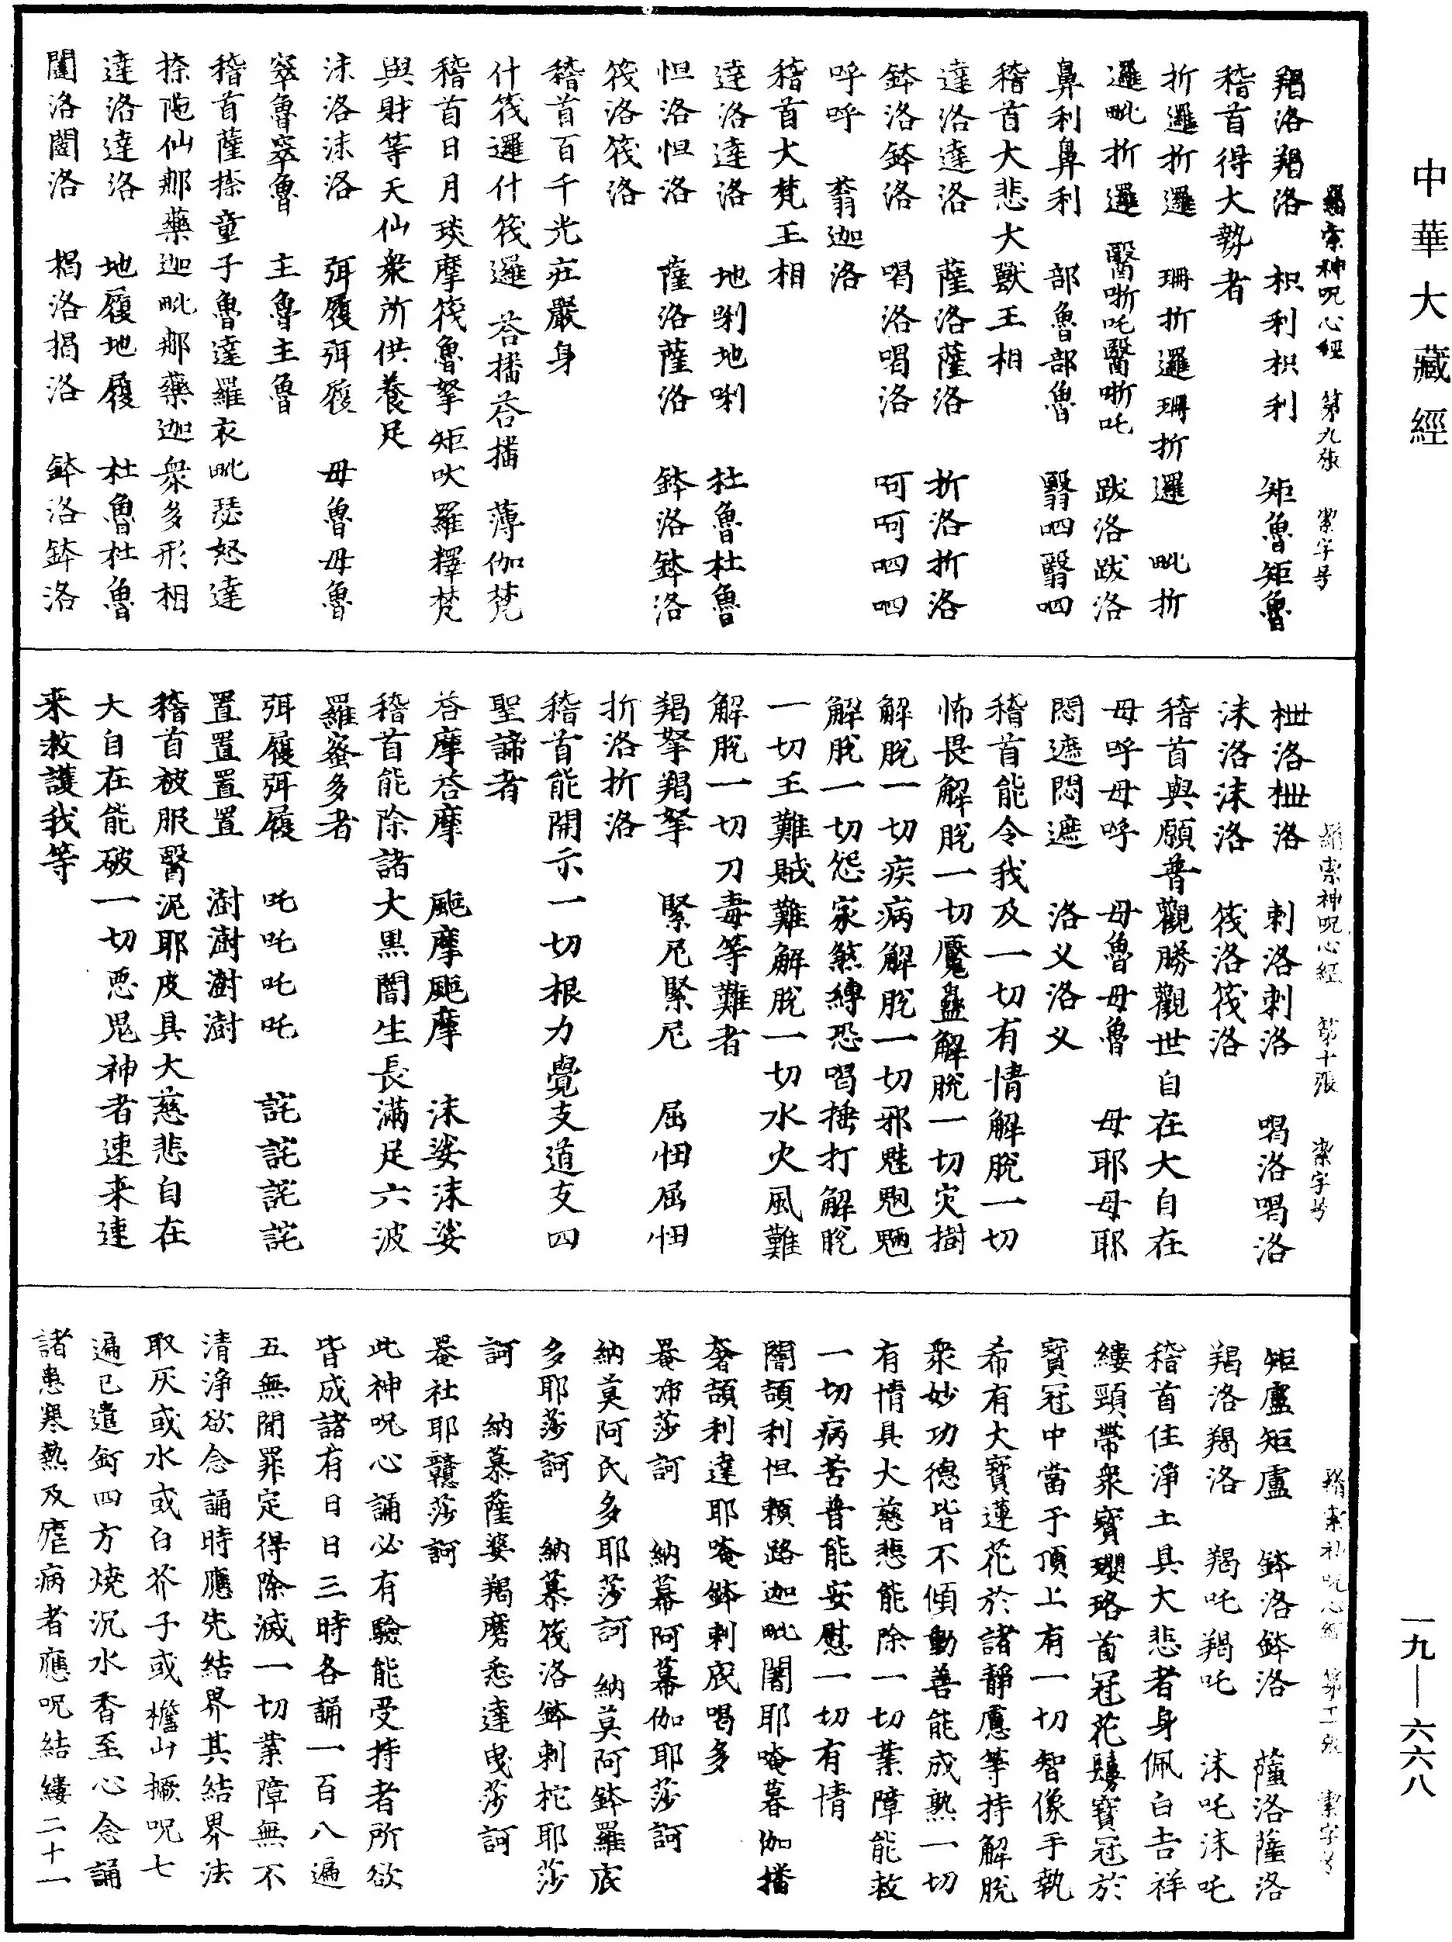 中華大藏經
羂索神呪心經　第九張　絜字号
羯洛羯洛　枳利枳利　矩魯矩魯
稽首得大勢者
折邏折邏　珊折邏珊折邏　毗折
邏毗折邏　醫哳吒醫哳吒　跋洛跋洛
鼻利鼻利　部魯部魯　翳呬翳呬
稽首大悲大獸王相
達洛達洛　薩洛薩洛　折洛折洛
鉢洛鉢洛　喝洛喝洛　呵呵呬呬
呼呼　蓊迦洛
稽首大梵王相
達洛達洛　地唎地唎　杜魯杜魯
怛洛怛洛　薩洛薩洛　鉢洛鉢洛
筏洛筏洛
稽首百千光莊嚴身
什筏邏什筏邏　荅播荅播　薄伽梵
稽首日月琰摩筏魯拏矩吠羅釋梵
與財等天仙衆所供養足
沫洛沫洛　弭履弭履　母魯母魯
窣魯窣魯　主魯主魯
稽首薩捺童子魯達羅衣毗瑟怒達
捺陁仙那藥迦毗那藥迦衆多形相
達洛達洛　地履地履　杜魯杜魯
闥洛闥洛　揭洛揭洛　鉢洛鉢洛
羂索神呪心經　第十張　絜字号
枻洛枻洛　刺洛刺洛　喝洛喝洛
沫洛沫洛　筏洛筏洛
稽首與願普觀勝觀世自在大自在
母呼母呼　母魯母魯　母耶母耶
悶遮悶遮　洛义洛义
稽首能令我及一切有情解脫一切
怖畏解脫一切魘蠱解脫一切災樹
解脫一切疾病解脫一切邪魅魍魎
解脫一切怨家煞縛恐喝捶打解脫
一切王難賊難解脫一切水火風難
解脫一切刀毒等難者
羯拏羯拏　緊尼緊尼　屈忸屈忸
折洛折洛
稽首能開示一切根力覺支道支四
聖諦者
荅摩荅摩　颰摩颰摩　沫娑沫娑
稽首能除諸大黑闇生長滿足六波
羅蜜多者
弭履弭履　吒吒吒吒　詫詫詫詫
置置置置　澍澍澍澍
稽首被服醫泥耶皮具大慈悲自在
大自在能破一切惡鬼神者速来速
来救護我等
神呪心經　第　絜字号
矩盧矩盧　鉢洛鉢洛　薩洛薩洛
羯洛羯洛　羯吒羯吒　沫吒沫吒
稽首住淨土具大悲者身佩白吉祥
縷頸帶衆寳瓔珞首冠花鬘寳冠於
寳冠中當于頂上有一切智像手執
希有大寳蓮花於諸靜慮等持解脫
衆妙功德皆不傾動善能成熟一切
有情具大慈悲能除一切業障能救
一切病苦普能安慰一切有情
闇頡利怛賴路迦毗闍耶唵暮伽播
奢頡利達耶唵鉢刺底喝多
菴布莎訶　納幕阿幕伽耶莎訶
納莫阿氏多耶莎訶　納莫阿鉢羅底
多耶莎訶　納慕筏洛鉢刺柁耶莎
訶　納慕薩婆羯磨悉達曳莎訶
菴社耶贛莎訶
此神呪心誦必有驗能受持者所欲
皆成諸有日日三時各誦一百八遍
五無間罪定得除滅一切業障無不
清淨欲念誦時應先結界其結界法
取灰或水或白芥子或檐山橛呪七
遍已遣釘四方燒沉水香至心念誦
諸患寒熱及瘧病者應呪結縷二十一
一九—六六八